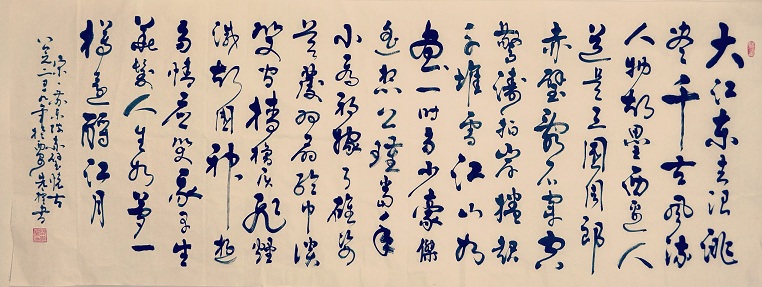 大江东去浪淘
尽千古风流
人物故垒西边人
道是三国周郎
赤壁乱石穿空
惊涛拍岸捲起
千堆雪江山如
画一时多少豪傑
遥想公瑾当年
小乔初嫁了雄姿
英发羽扇纶巾谈
笑间樯橹灰飞煙
灭故国神游
多情应笑我早生
华发人生如梦一
樽还酹江月
宋·苏东坡赤壁怀古
公元二〇一九年于西安 书